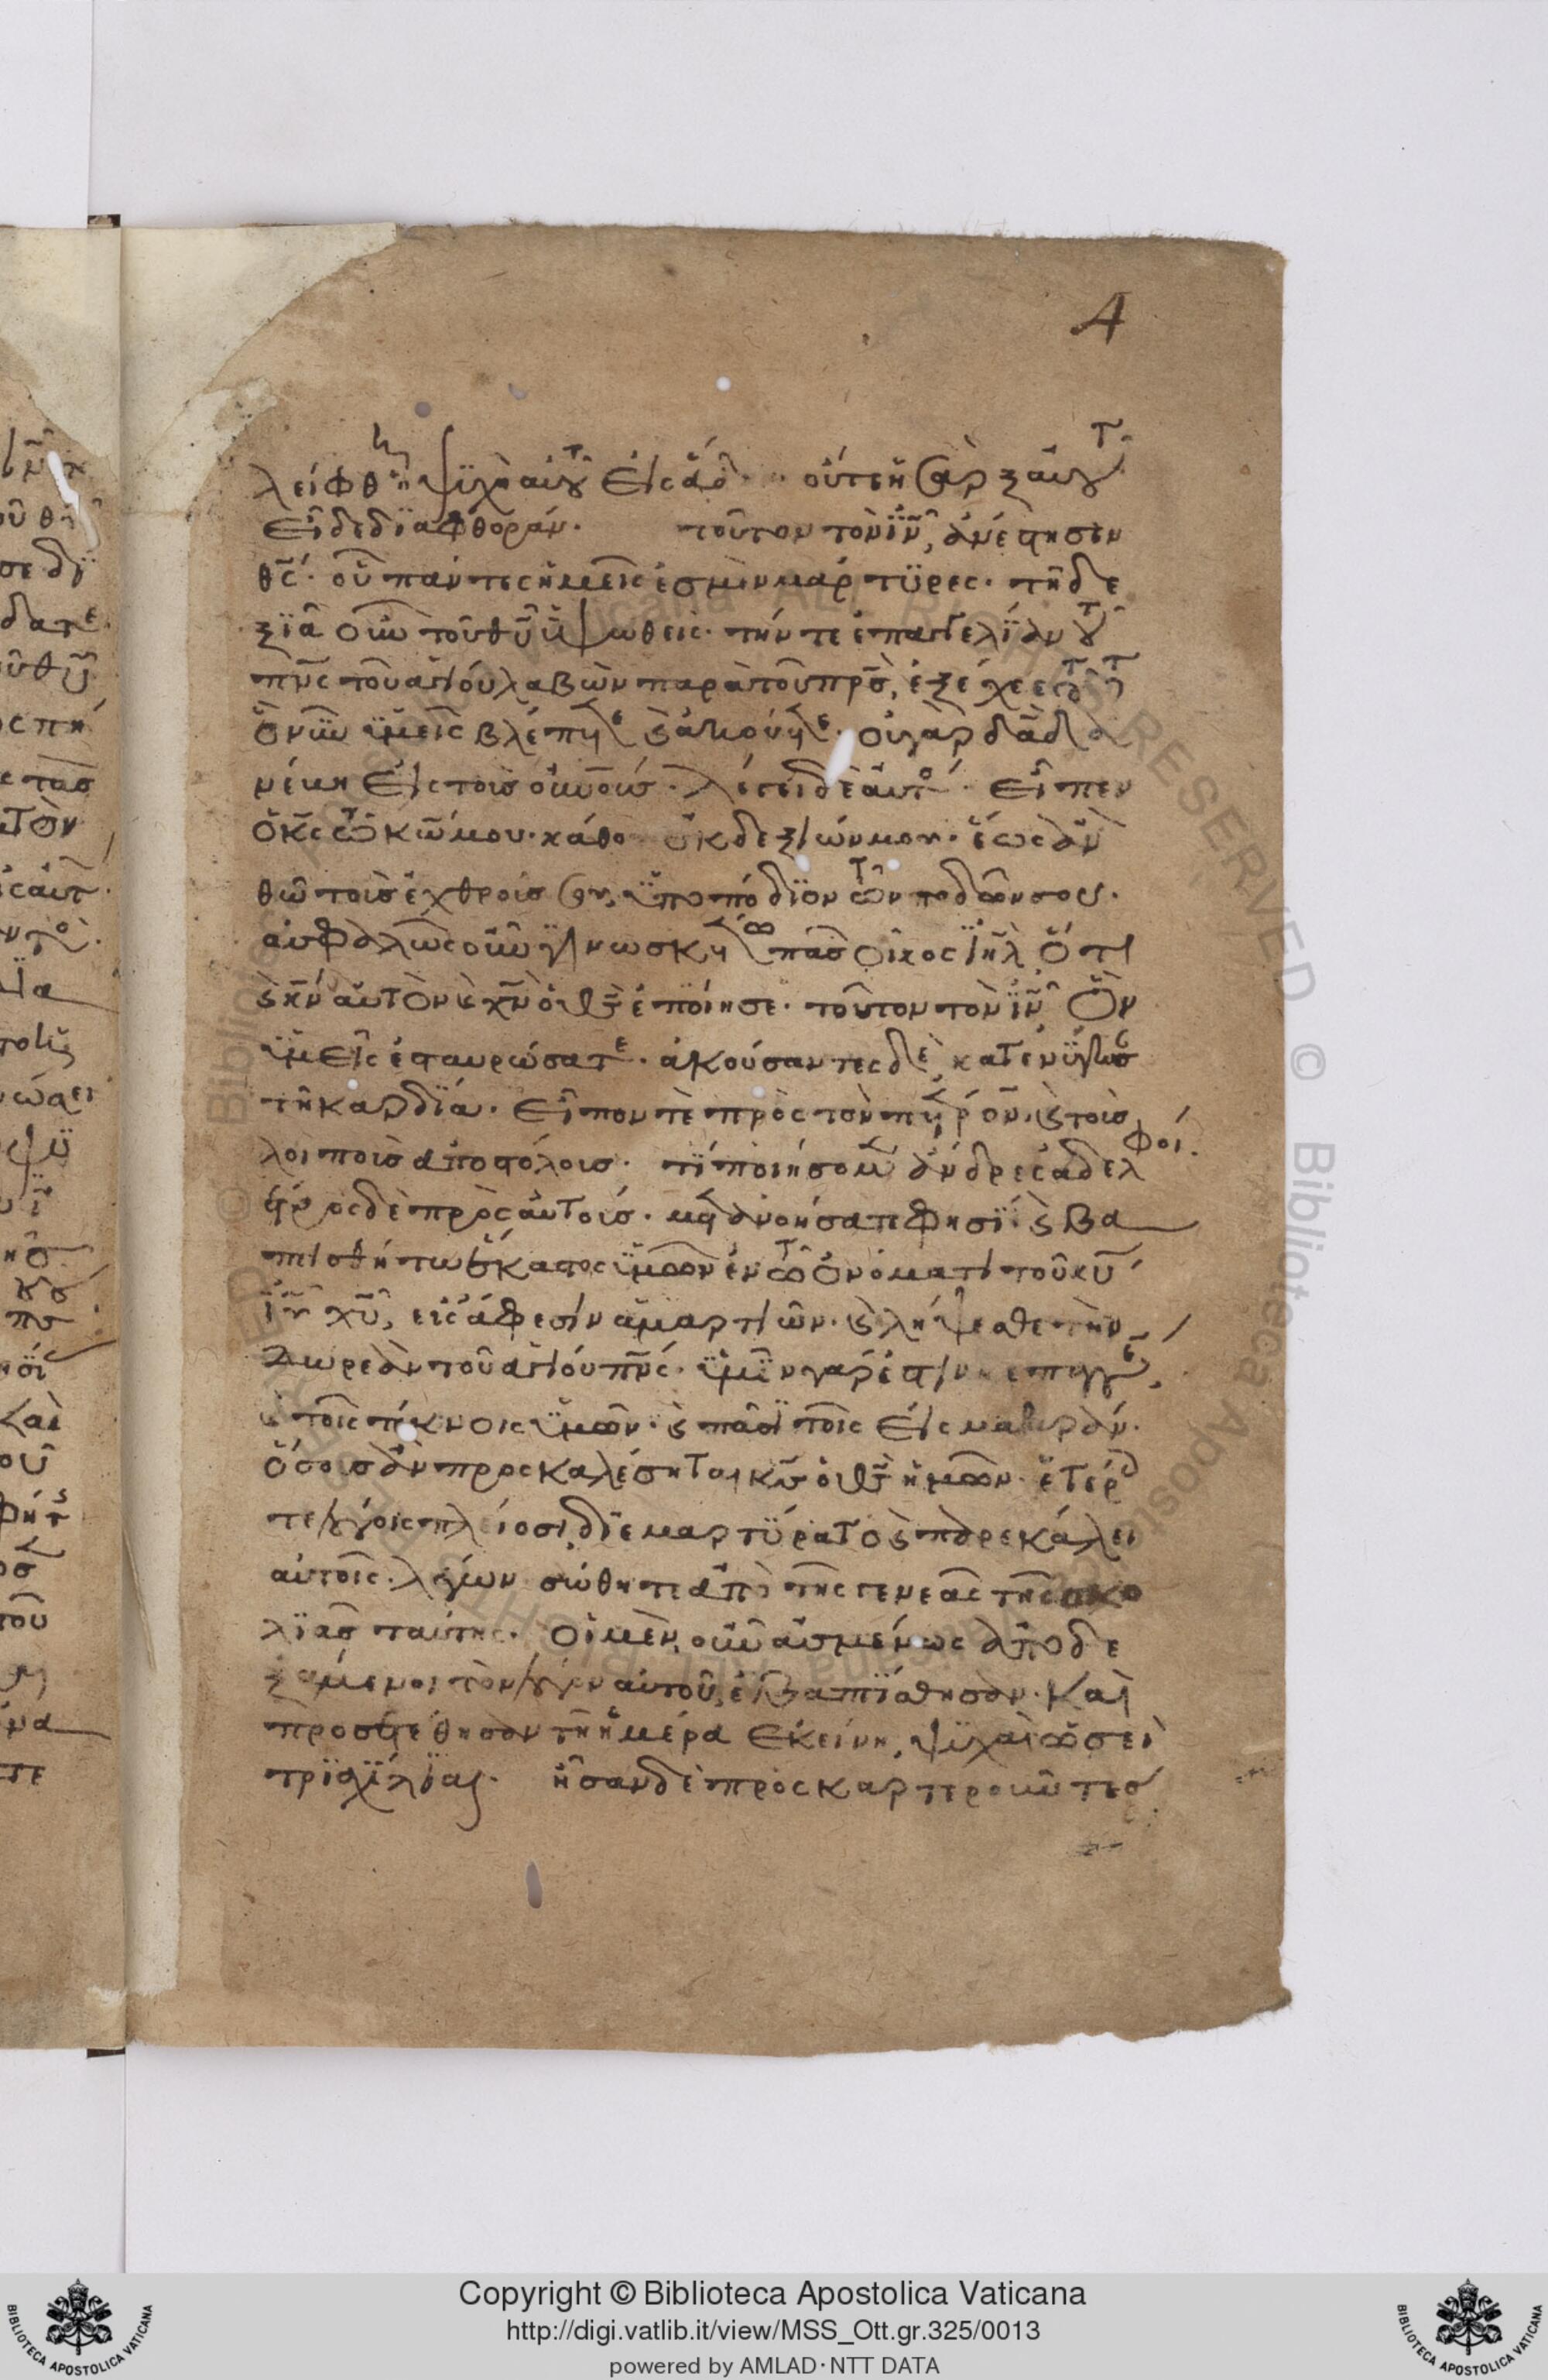 4
λείφθη ἡ ψϋχὴ αὐτοῦ εἰς ἅδου· οὔτε ἡ σὰρξ αὐτοῦ
εἶδε δϊαφθοράν. τοῦτον τὸν ϊν, ἀνέστησεν
θς. οὗ πάντες ἡμεῖς ἐσμὲν μάρτϋρες. τῆ δε
ξϊᾶ οὖν τοῦ θυ ὑψωθεὶς. τήν τε ἐπαγγελΐαν τοῦ
πνς τοῦ ἁγίου λαβὼν παρὰ τοῦ πρς, ἐξέχεε τοῦτο
ὃ νῦν ὑμεῖς βλέπετε καὶ ἀκούετε. οὐ γὰρ δαδ ἀ
νέβη εἰς τοὺς οὐνοὺς. λέγει δὲ αὐτὸς. εἶπεν
ὁ κς τῶ κω μου. κάθου ἐκ δεξιῶν μου. ἕως ἂν
θῶ τοὺς ἐχθρούς σου, ὑποπόδϊον τῶν ποδῶν σου.
ἀσφαλῶς οὖν γινωσκέτω πᾶς οἶκος ιηλ ὅτι
καὶ κν αὐτὸν καὶ χν ὁ θς ἐποίησε. τοῦτον τὸν ϊν ὃν
ὑμεῖς ἐσταυρώσατε. ἀκούσαντες δὲ, κατενύγησ
τῆ καρδϊά. εἶπόν τε πρὸς τὸν πέτρον, καὶ τοὺς
λοιποὺς ἀποστόλους. τΐ ποιήσομεν ἄνδρες ἀδελ
φοί.
πέτρος δὲ πρὸς αὐτοὺς. μετανοήσατε φησΐ. καὶ βα
πτισθήτω ἕκαστος ὑμῶν ἐν τῶ ὀνόματι τοῦ κυ
ϊυ χυ, εἰς ἄφεσιν ἁμαρτιῶν. καὶ λήψεσθε τὴν
δωρεὰν τοῦ ἁγίου πνς. ὑμῖν γάρ ἐστιν ἡ ἐπαγγε,
καὶ τοῖς τέκνοις ὑμῶν. καὶ πᾶσϊ τοῖς εἰς μακράν.
ὅσους ἂν προσκαλέσηται κς ὁ θς ἡμῶν. ἑτέρ
τε λόγοις πλείοσι, διεμαρτΰρατο καὶ παρεκάλει
αὐτοὺς. λέγων σώθητε ἀπὸ τῆς γενεᾶς τῆς σκο
λϊᾶς ταύτης. οἱ μὲν, οὖν ἀσμένως ἀποδε
ξάμενοι τὸν λόγον αὐτοῦ, ἐβαπτΐσθησαν. καὶ
προσετέθησαν τῆ ἡμέρα ἐκείνη, ψϋχαὶ ὡσεὶ
τρϊσχΐλϊαι. ἦσαν δὲ προσκαρτεροῦντες
Copyright © Biblioteca Apostolica Vaticana
http://digi.vatlib.it/view/MSS_Ott.gr.325/0013
powered by AMLAD·NTT DATA